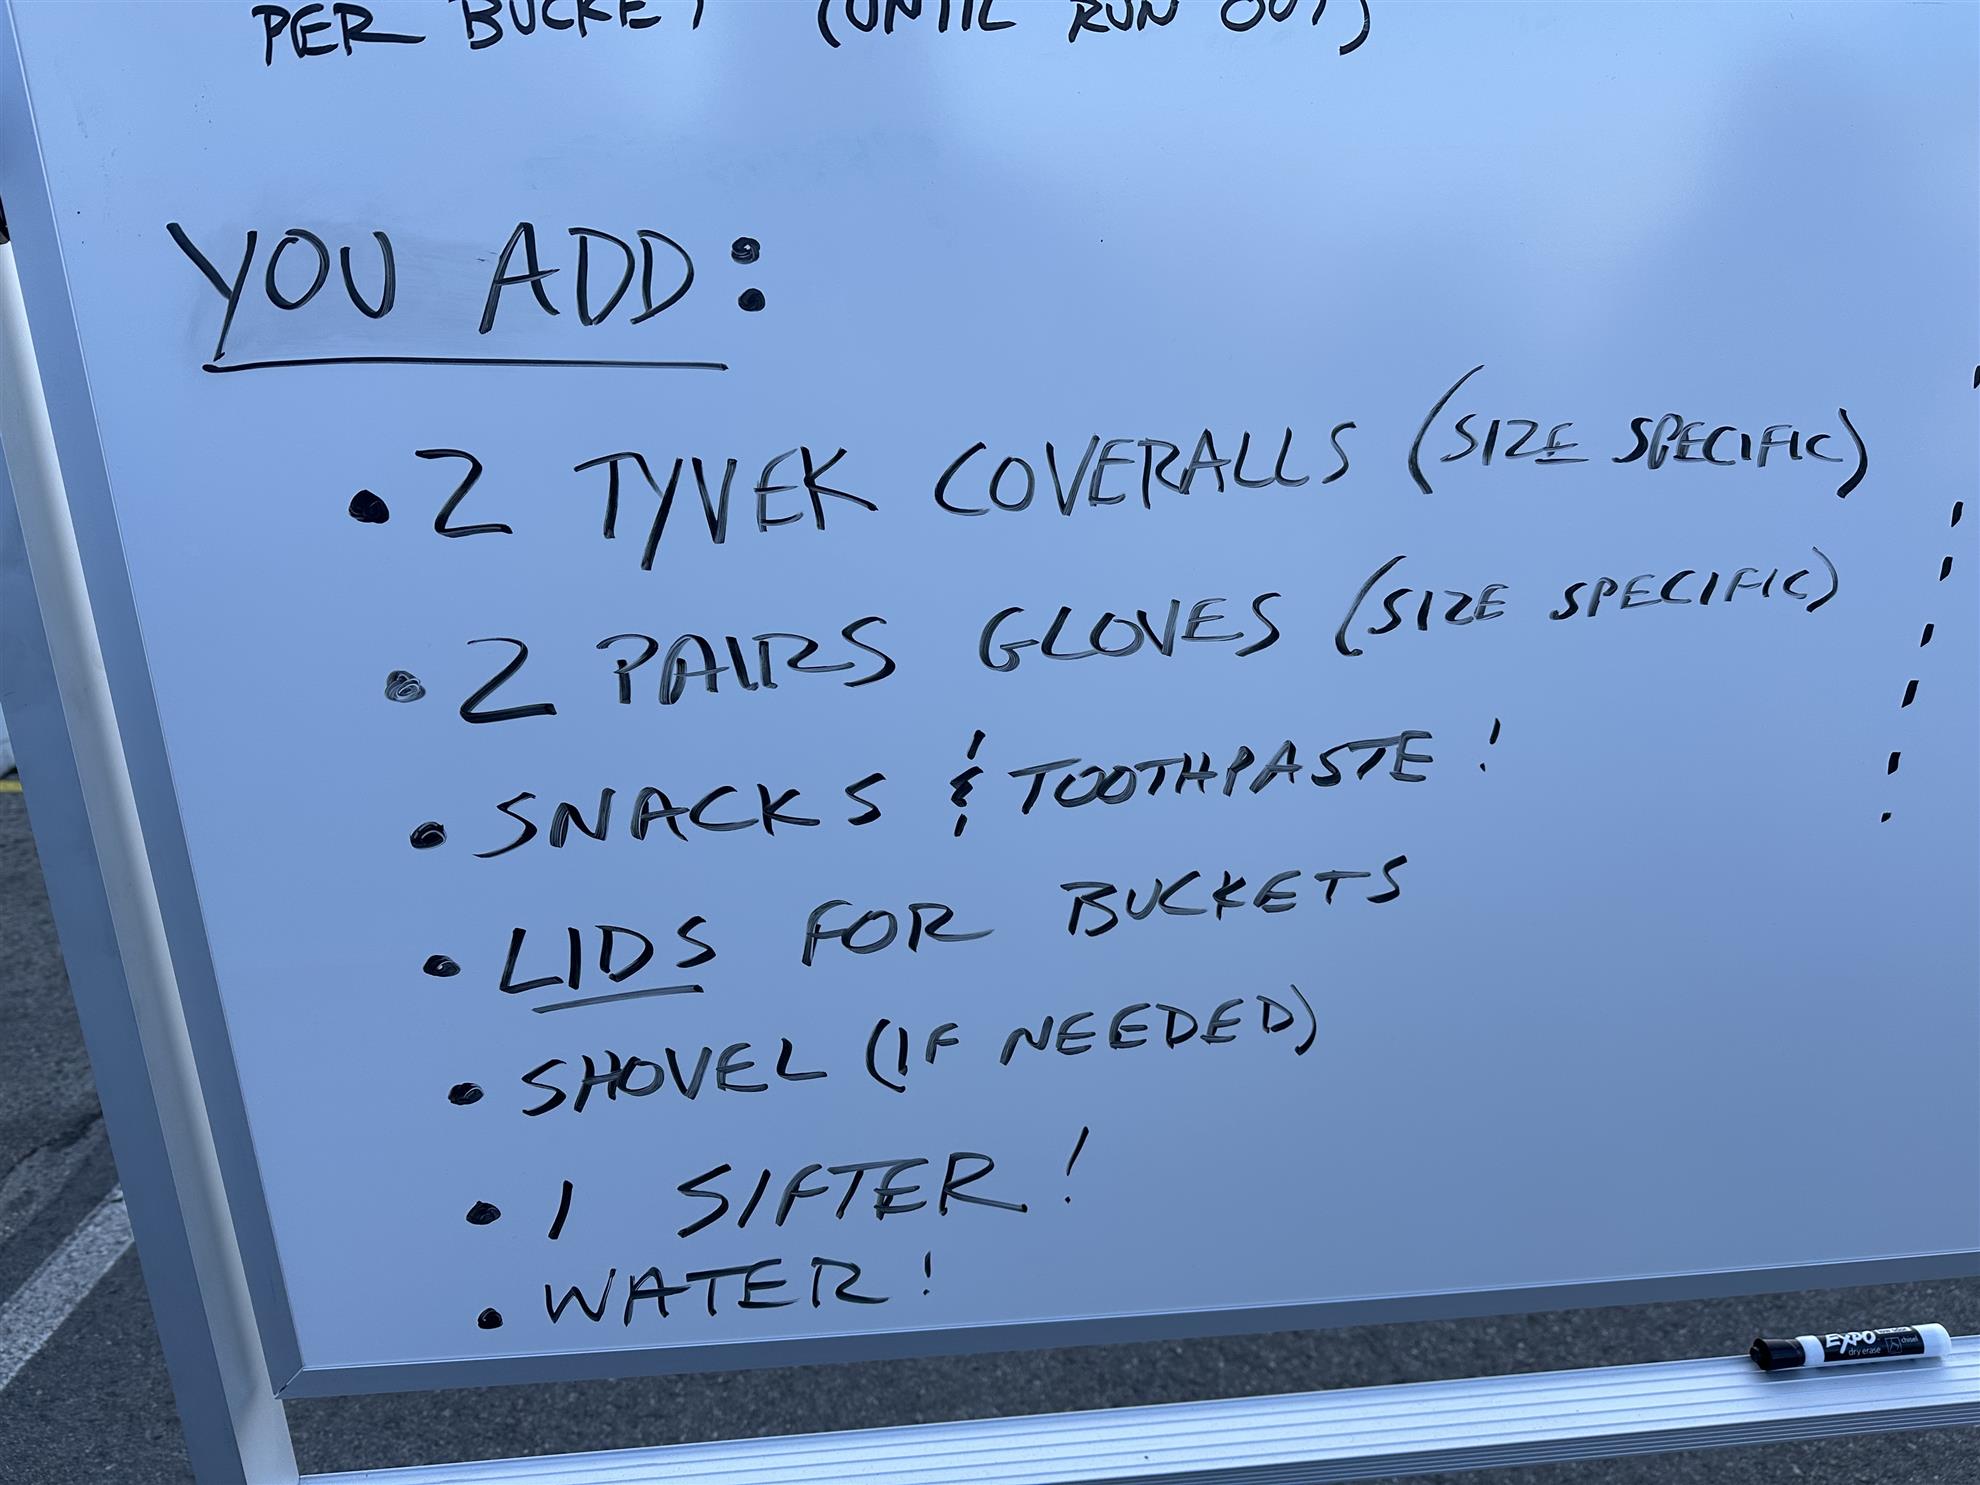 PER BUCKET (UNTIL RUN OUT)
YOU ADD:
• 2 TYVEK COVERALLS (SIZE SPECIFIC)
• 2 PAIRS GLOVES (SIZE SPECIFIC)
• SNACKS & TOOTHPASTE!
• LIDS FOR BUCKETS
• SHOVEL (IF NEEDED)
• 1 SIFTER!
• WATER!
EXPO
dry erase
chisel